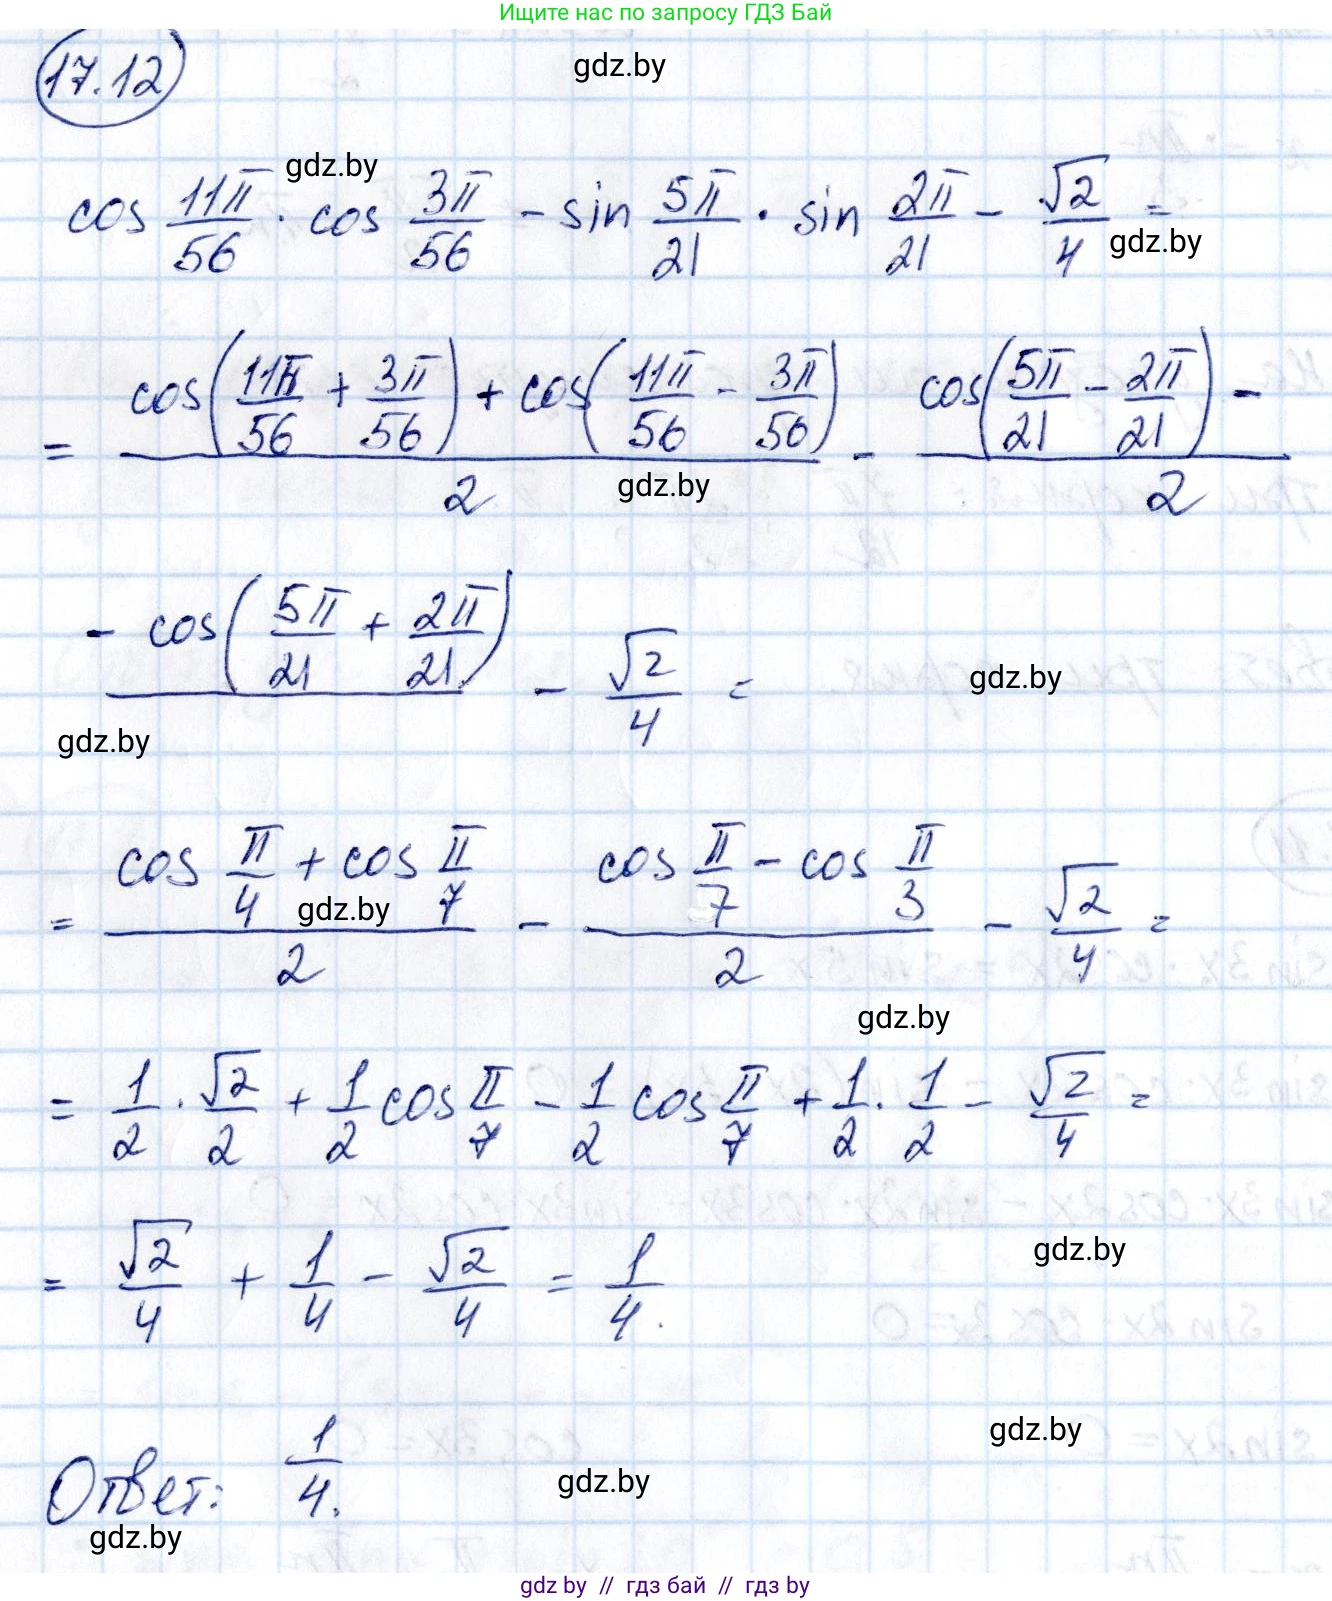 Ищите нас по запросу ГДЗ Бай
17.12
gdz.by
gdz.by
cos 11π/56 · cos 3π/56 - sin 5π/21 · sin 2π/21 - √2/4 =
gdz.by
= (cos(11π/56 + 3π/56) + cos(11π/56 - 3π/56))/2 - (cos(5π/21 - 2π/21) -)/2
gdz.by
- cos(5π/21 + 2π/21) - √2/4 =
gdz.by
gdz.by
= (cos π/4 + cos π/7)/2 - (cos π/7 - cos π/3)/2 - √2/4 =
gdz.by
gdz.by
= 1/2 · √2/2 + 1/2 cos π/7 - 1/2 cos π/7 + 1/2 · 1/2 - √2/4 =
gdz.by
= √2/4 + 1/4 - √2/4 = 1/4.
gdz.by
Ответ: 1/4.
gdz.by
gdz.by
gdz by // гдз бай // гдз by